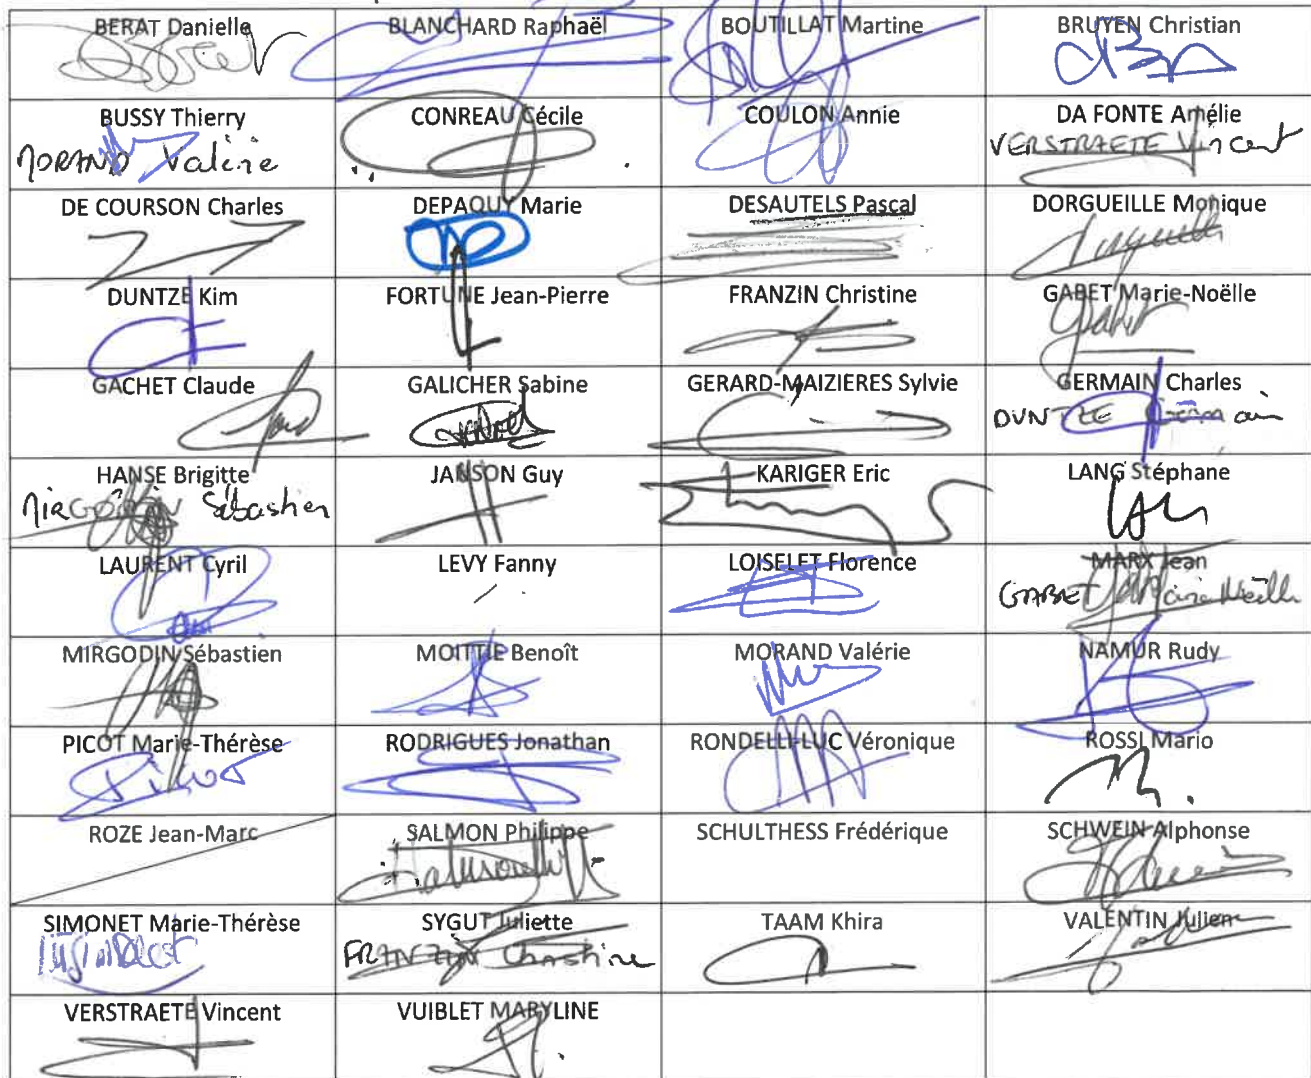 BERAT Danielle
BLANCHARD Raphaël
BOUTILLAT Martine
BRUYEN Christian
BUSSY Thierry
MORAND Valérie
CONREAU Cécile
COULON Annie
DA FONTE Amélie
VERSTRAETE Vincent
DE COURSON Charles
DEPAQUY Marie
DESAUTELS Pascal
DORGUEILLE Monique
DUNTZE Kim
FORTUNE Jean-Pierre
FRANZIN Christine
GABET Marie-Noëlle
GACHET Claude
GALICHER Sabine
GERARD-MAIZIERES Sylvie
GERMAIN Charles
DUNTZE
HANSE Brigitte
MIRGODIN Sébastien
JANSON Guy
KARIGER Eric
LANG Stéphane
LAURENT Cyril
LEVY Fanny
LOISELET Florence
MARX Jean
GABET Marie Noëlle
MIRGODIN Sébastien
MOITTIE Benoît
MORAND Valérie
NAMUR Rudy
PICOT Marie-Thérèse
Picot
RODRIGUES Jonathan
RONDELLI-LUC Véronique
ROSSI Mario
ROZE Jean-Marc
SALMON Philippe
SCHULTHESS Frédérique
SCHWEIN Alphonse
SIMONET Marie-Thérèse
SYGUT Juliette
FRANZIN Christine
TAAM Khira
VALENTIN Julien
VERSTRAETE Vincent
VUIBLET MARYLINE